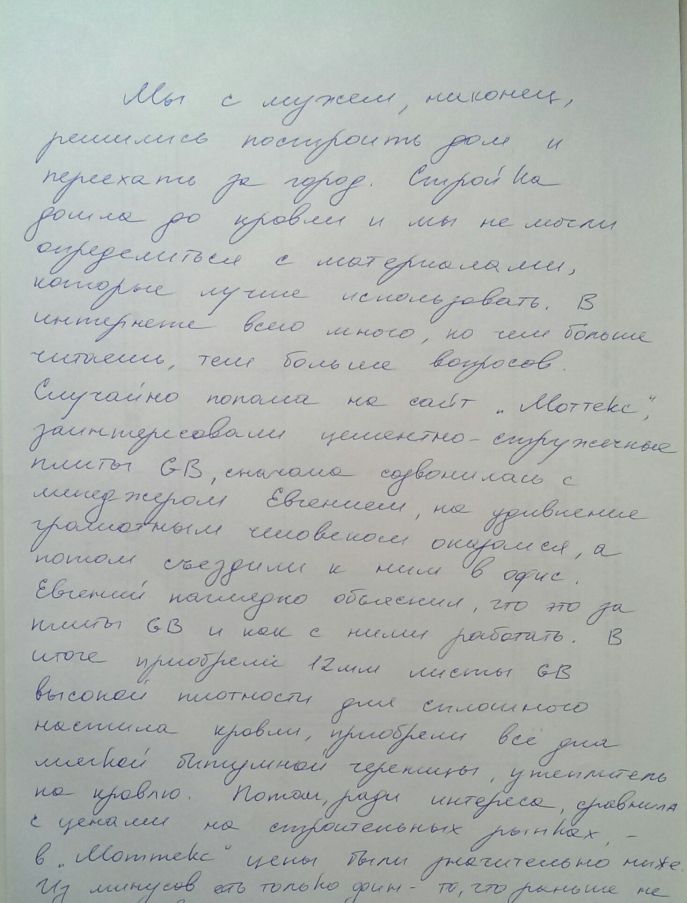 Мы с мужем, наконец,
решились построить дом и
переехать за город. Стройка
дошла до кровли и мы не могли
определиться с материалами,
которые лучше использовать. В
интернете всего много, но чем больше
читаешь, тем больше вопросов.
Случайно попала на сайт „Моттекс",
заинтересовали цементно-стружечные
плиты GB, сначала созвонилась с
менеджером Евгением, на удивление
грамотным человеком оказался, а
потом съездили к ним в офис.
Евгений наглядно объяснил, что это за
плиты GB и как с ними работать. В
итоге приобрели 12мм листы GB
высокой плотности для сплошного
настила кровли, приобрели всё для
мягкой битумной черепицы, утеплитель
на кровлю. Потом, ради интереса, сравнила
с ценами на строительных рынках, -
в „Моттекс" цены были значительно ниже.
Из минусов есть только один - то, что раньше не